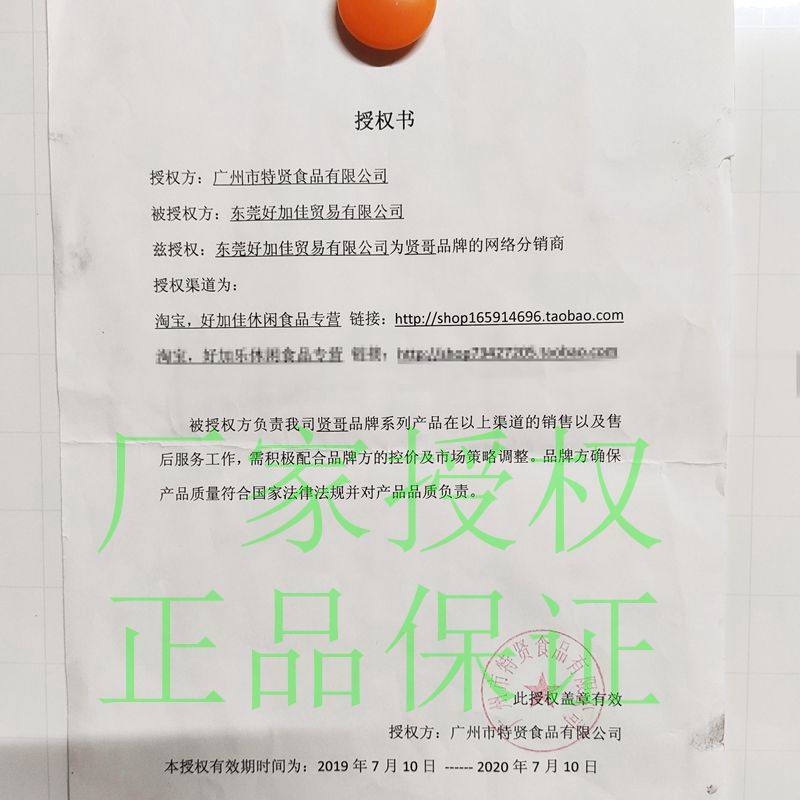 授权书
授权方：广州市特贤食品有限公司
被授权方：东莞好加佳贸易有限公司
兹授权：东莞好加佳贸易有限公司为贤哥品牌的网络分销商
授权渠道为：
淘宝，好加佳休闲食品专营 链接：http://shop165914696.taobao.com
淘宝，好加乐休闲食品专营 链接：
被授权方负责我司贤哥品牌系列产品在以上渠道的销售以及售
后服务工作，需积极配合品牌方的控价及市场策略调整。品牌方确保
产品质量符合国家法律法规并对产品品质负责。
厂家授权
正品保证
广州市特贤食品有限公司
此授权盖章有效
授权方：广州市特贤食品有限公司
本授权有效期时间为：2019 年 7 月 10 日 ------ 2020 年 7 月 10 日